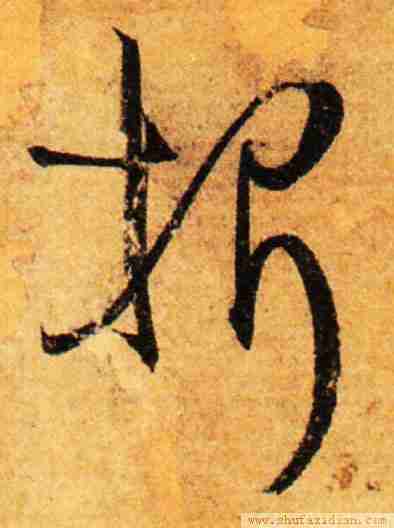 折
www.shufazidian.com